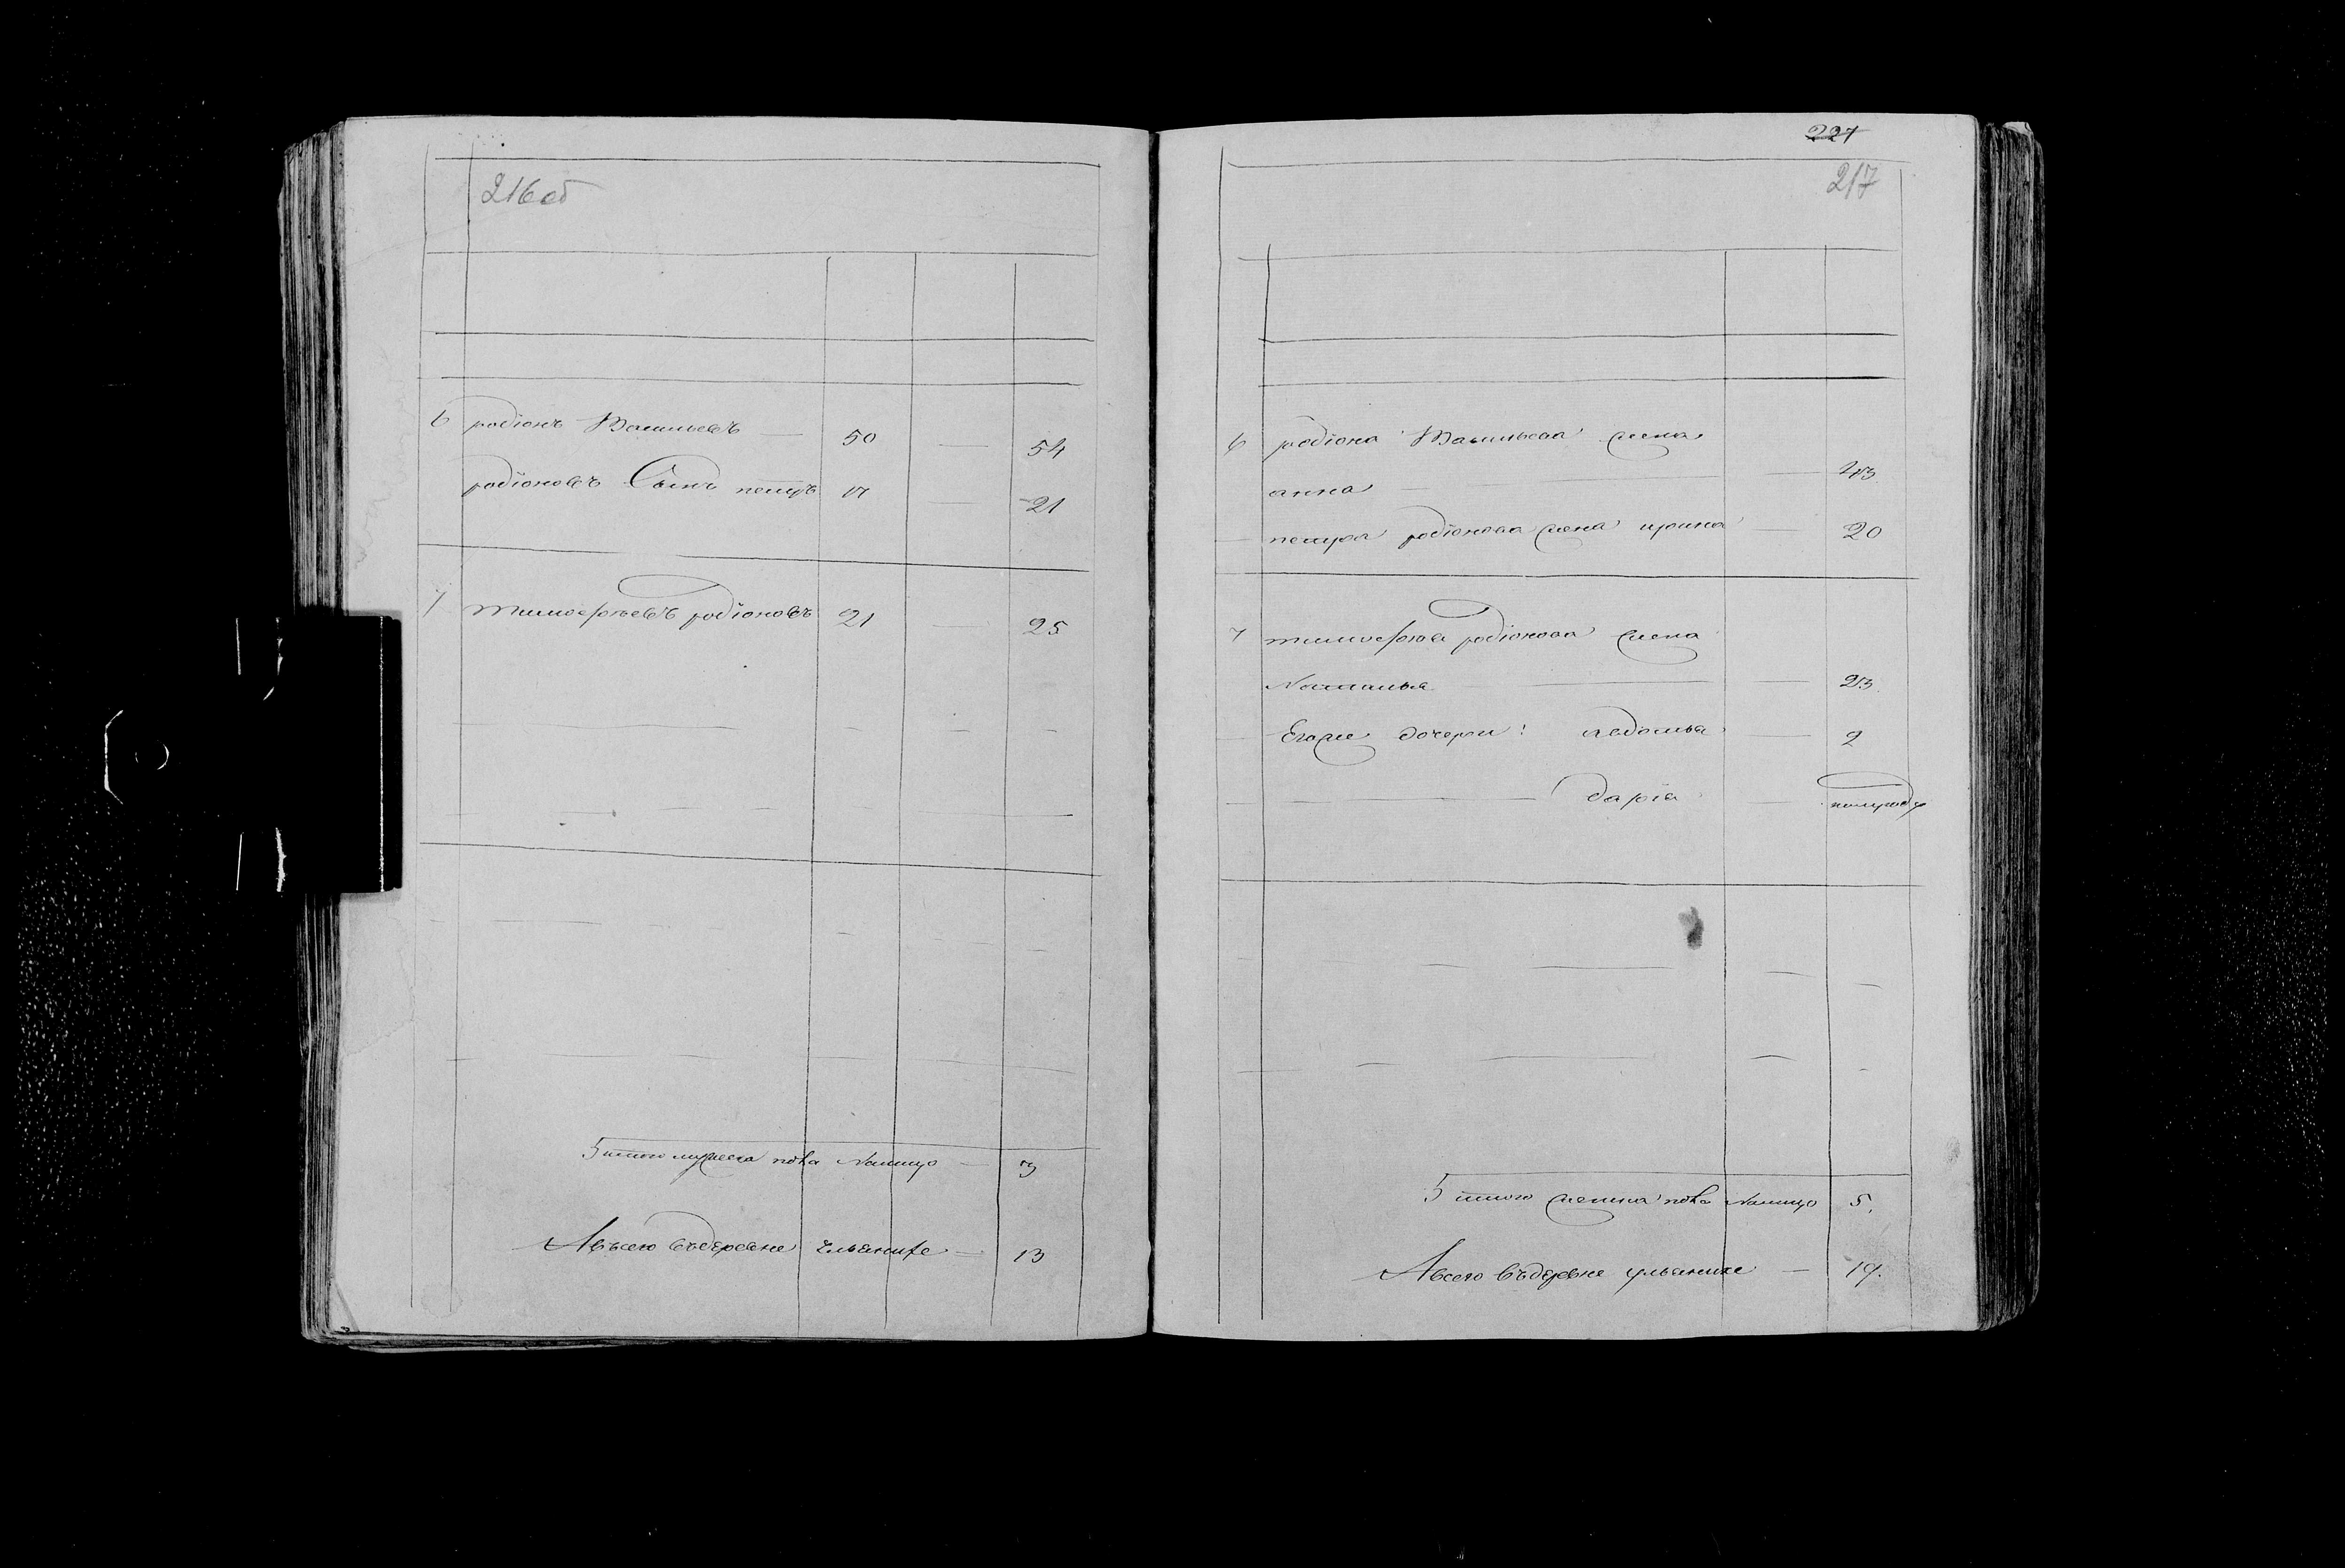 216об
6 родіонъ Васильевъ — 50 — 54
родіоновъ Сынъ петръ 17 — 21
7 тимофѣевъ родіоновъ 21 — 25
итого мужеска пола Налицо — 3
Авсего въдеревне ульянихе — 13
227
217
6 родіона Васильева жена
анна — 43
петра родіонова жена ирина — 20
7 тимофѣя родіонова жена
Наталья — 23
Егоже дочери: авдотья — 2
дарія — полугоду
итого женска пола Налицо 5.
Авсего въдеревне ульянихе — 19.